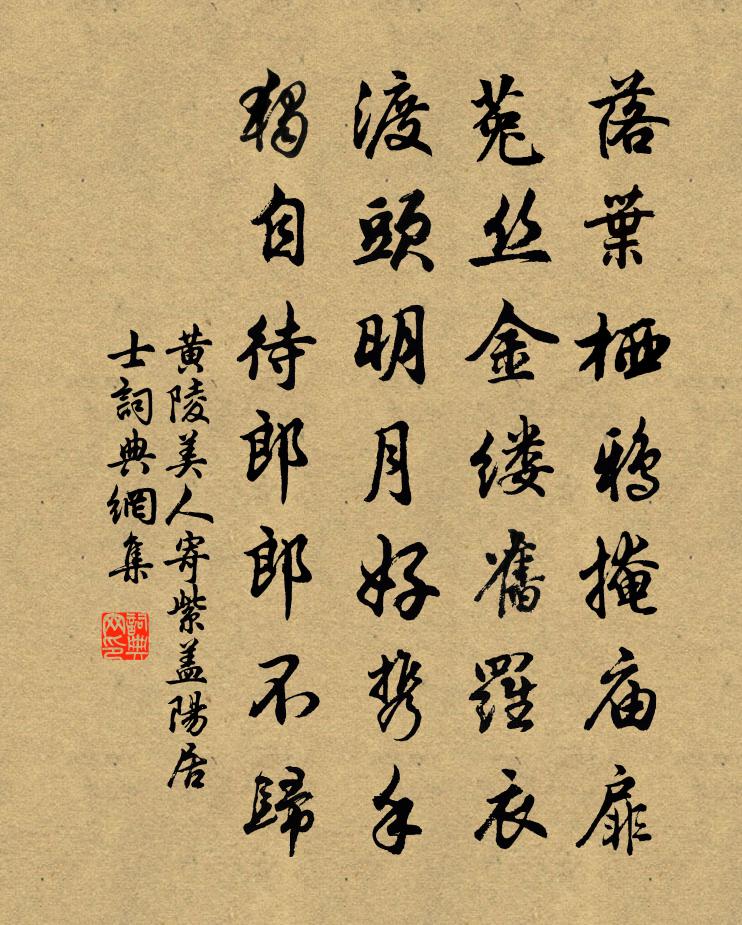 落葉栖鴉掩庙扉
菟丝金缕舊羅衣
渡頭明月好携手
獨自待郎郎不歸
黄陵美人寄紫盖陽居
士詞典網集
詞典网印